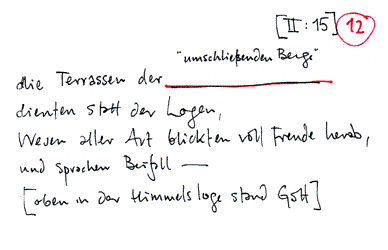 [II : 15] 12
"umschließenden Berge"
die Terrassen der
dienten statt der Logen,
Wesen aller Art blickten voll Freude herab,
und sprachen Beifall —
[oben in der Himmelsloge stand Gott]